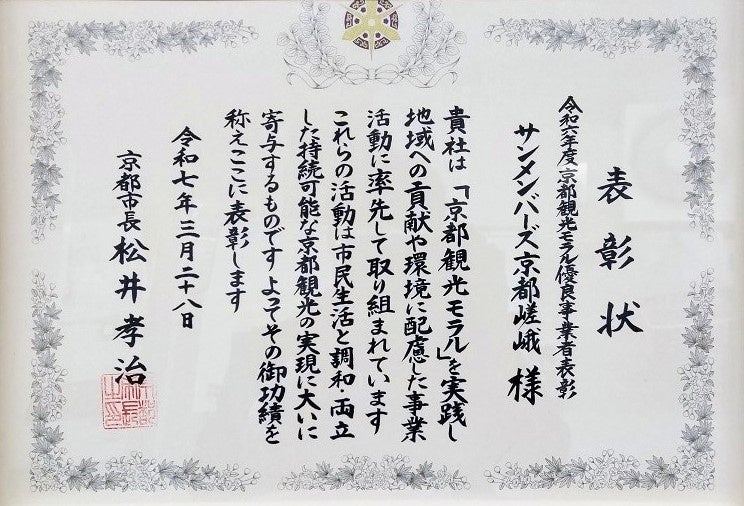 表彰状
令和六年度京都観光モラル優良事業者表彰
サンメンバーズ京都嵯峨 様
貴社は「京都観光モラル」を実践し
地域への貢献や環境に配慮した事業
活動に率先して取り組まれています
これらの活動は市民生活と調和・両立
した持続可能な京都観光の実現に大いに
寄与するものです よってその御功績を
称えここに表彰します
令和七年三月二十八日
京都市長 松井孝治